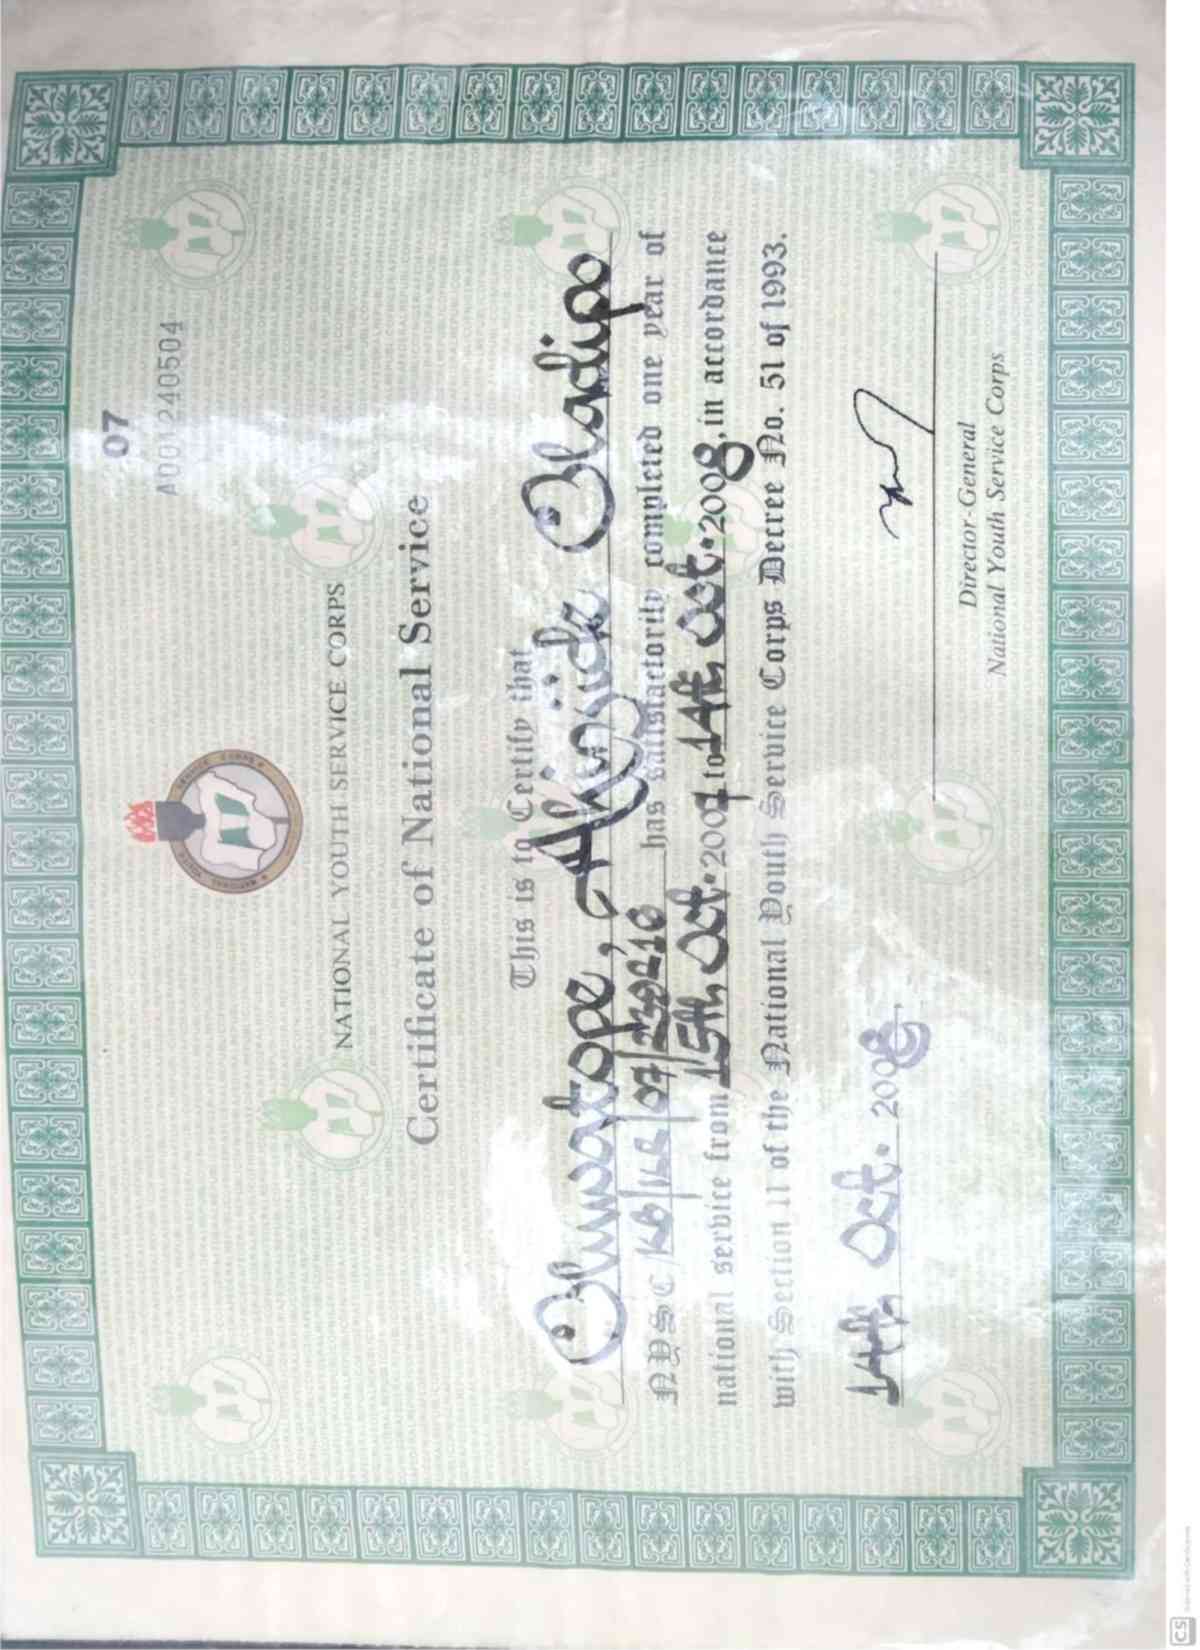 07
A001240504
NATIONAL YOUTH SERVICE CORPS
Certificate of National Service
This is to Certify that
Oluwatope, Akinjide Oladipo
NYSC/KG/ /07/ has satisfactorily completed one year of
national service from 15th Oct. 2007 to 14th Oct. 2008, in accordance
with Section 11 of the National Youth Service Corps Decree No. 51 of 1993.
14th Oct. 2008
Director-General
National Youth Service Corps
CS